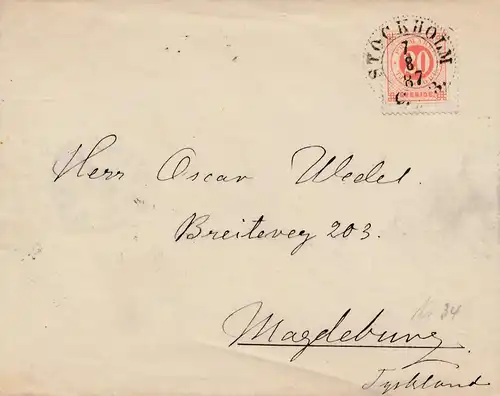 STOCKHOLM
7
8
87
20
SVERIGE
Herr Oscar Wedel.
Breiteveg 203.
34
Magdeburg.
Tyskland